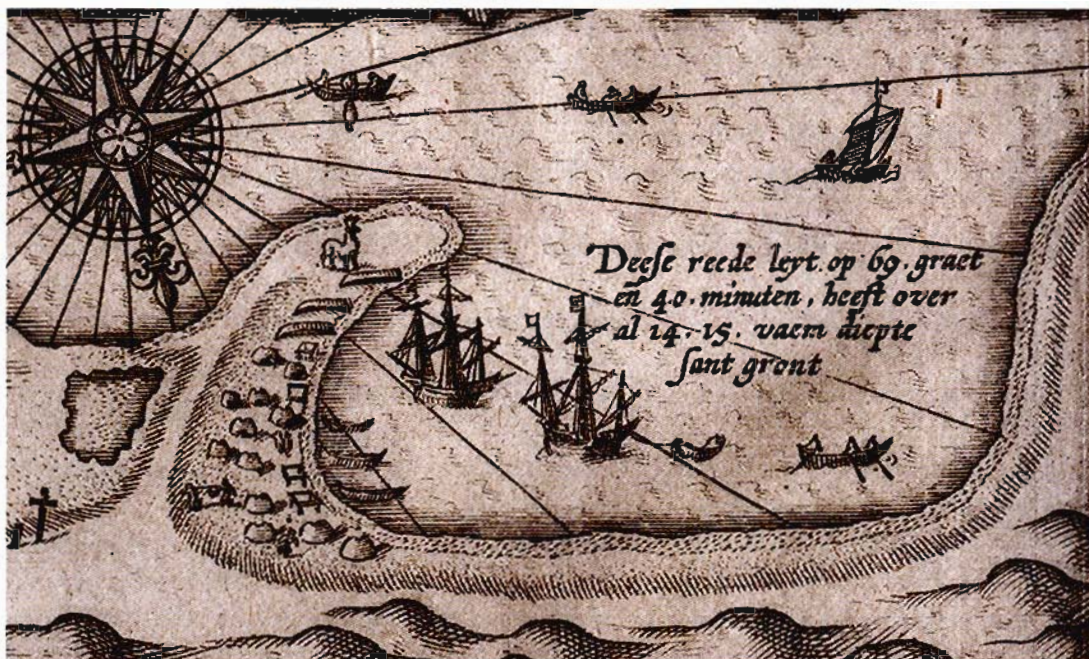 Deese reede leyt op 69. graet
eñ 40. minuten, heeft over
al 14. 15. vaem diepte
sant gront